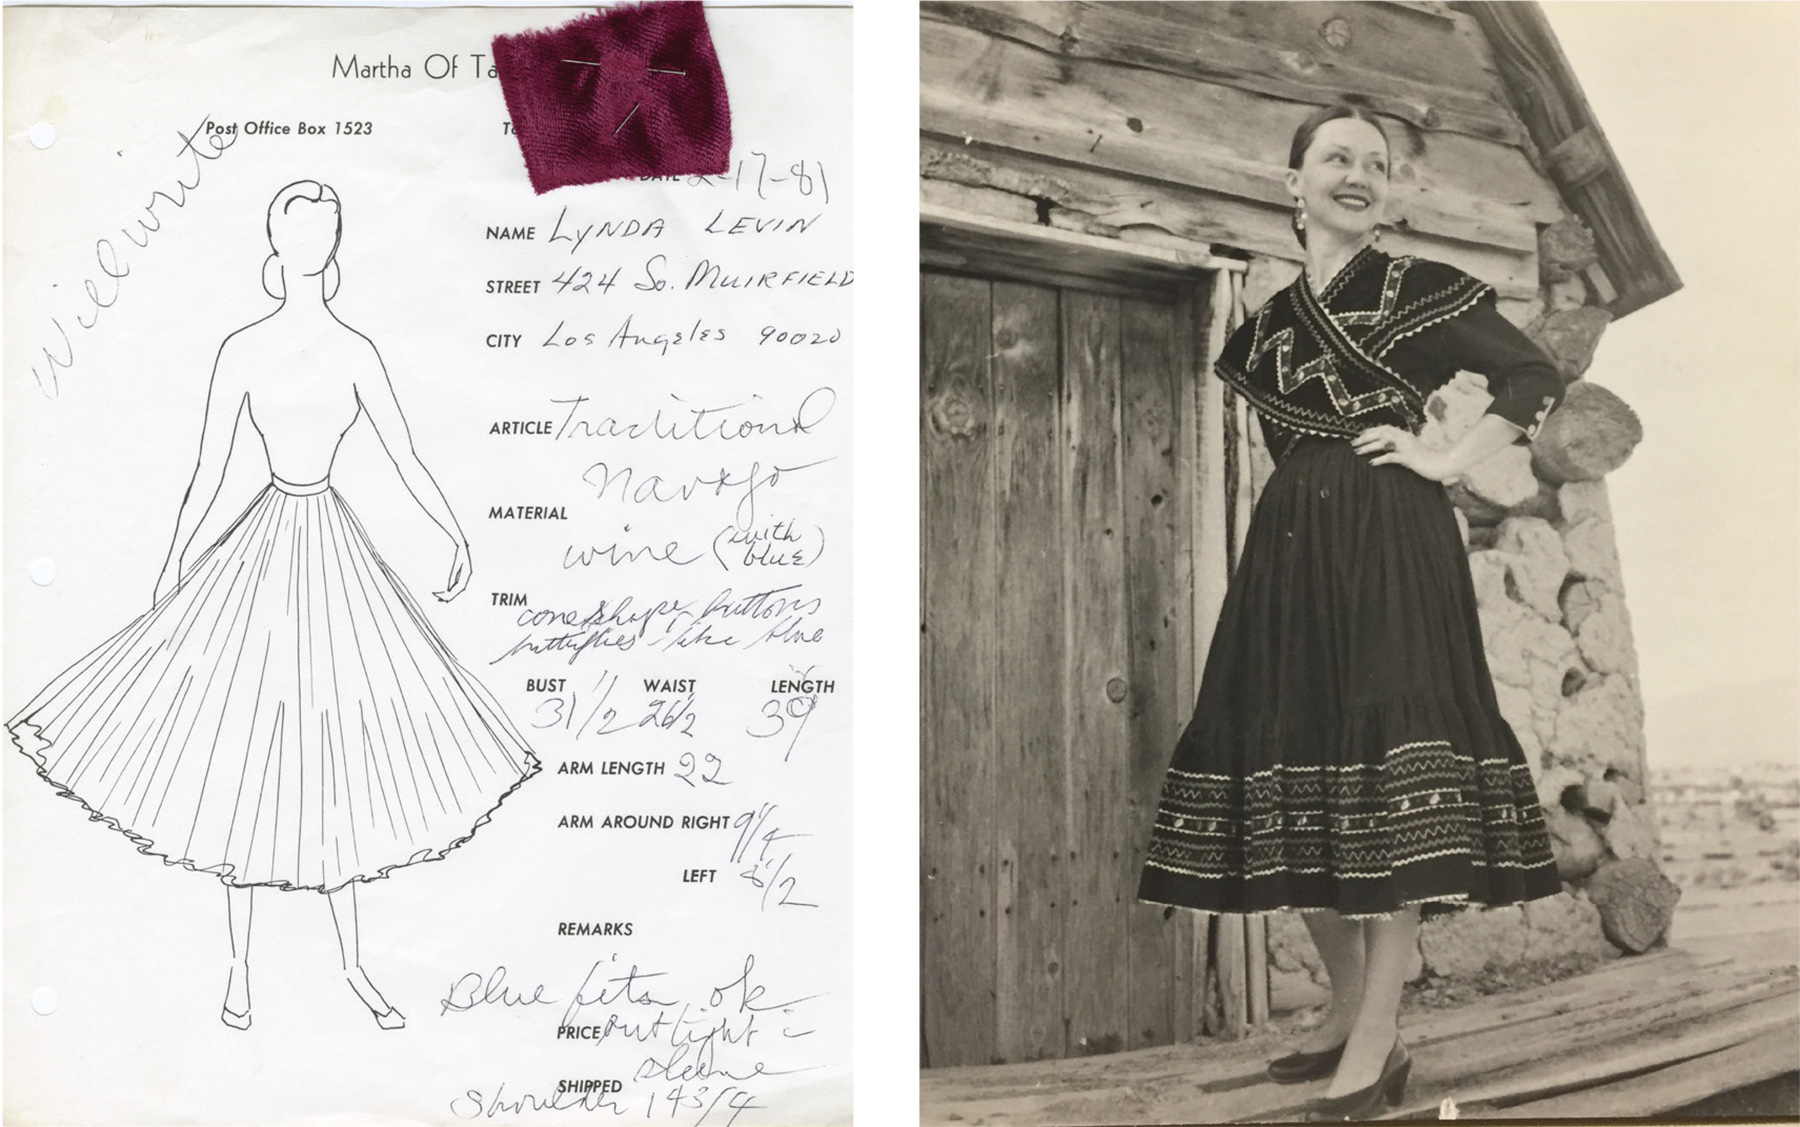 Martha Of Ta
Post Office Box 1523
Will write
DATE 2-17-81
NAME LYNDA LEVIN
STREET 424 So. MUIRFIELD
CITY Los Angeles 90020
ARTICLE Traditional
Navajo
MATERIAL
wine (with
blue)
TRIM
cone shape buttons
butterflies - like blue
BUST WAIST LENGTH
31 1/2 26 1/2 39
ARM LENGTH 22
ARM AROUND RIGHT 9 1/4
LEFT 8 1/2
REMARKS
Blue fits ok
PRICE but tight in
sleeve
SHIPPED
Shoulder 14 3/4